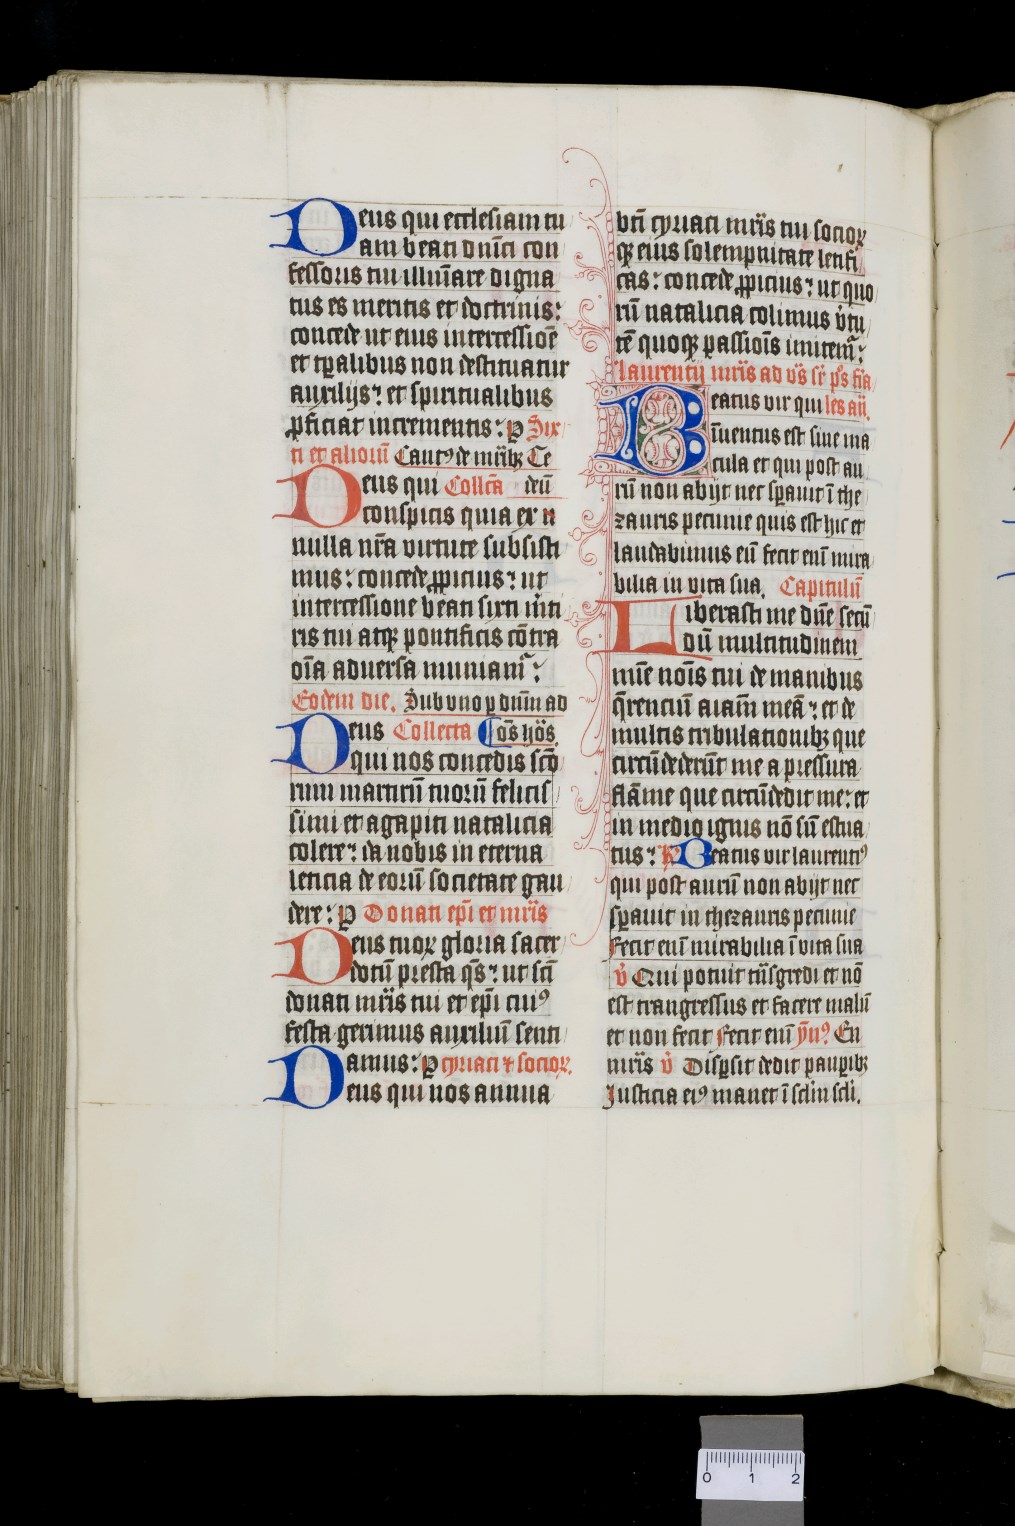 Deus qui ecclesiam tu
am beati dnīci con
fessoris tui illuīare digna
tus es meritis et doctrinis:
concede ut eius intercessiōe
et tꝑalibus non destituatur
auxilijs: et spiritualibus
ꝓficiat incrementis: ꝑ Six
ti et alioꝝ Cantꝰ de mr̄ibꝫ Ce
Deus qui Collc̄a deū
conspicis quia ex n
nulla nr̄a virtute subsisti
mus: concede ꝓpicius: ut
intercessione beati sixti mr̄ti
ris tui atqꝫ pontificis cōtra
oīa aduersa muniamr:
Eodem die. Sub vno ꝑ dnīm ad
Deus Collecta oēs hōs
qui nos concedis scō
rum martirū tuorū felicis
simi et agapiti natalicia
colere: da nobis in eterna
leticia de eorū societate gau
dere: ꝑ Donati epī et mr̄is
Deus tuoꝝ gloria sacer
dotū presta qs̄: ut scī
donati mr̄is tui et epī cuiꝰ
festa gerimus auxiliū senti
amus: ꝑ cyriaci ⁊ socioꝝ.
Deus qui nos annua
bt̄i cyriaci mr̄is tui socioꝝ
qꝫ eius solempnitate letifi
cas: concede ꝓpicius: ut quo
rū natalicia colimus v̄tu
tē quoqꝫ passiōis imitemr:
laurentij mr̄is ad vs̄ sr̄ ps̄ fīa
Beatus vir qui les an̄.
īuentus est sine ma
cula et qui post au
rū non abijt nec sꝑauit ī the
zauris pecunie quis est hic et
laudabimus eū fecit enī mira
bilia in vita sua. Capitulū
Liberasti me dn̄e secū
dū multitudinem
mīe noīs tui de manibus
q̄rentiū aīam meā: et de
multis tribulationibꝫ que
circūdederūt me a pressura
flāme que circūdedit me: et
in medio ignis nō sū estua
tus: ℟ Beatus vir laurentiꝰ
qui post aurū non abijt nec
sꝑauit in thezauris pecunie
Fecit enī mirabilia ī vita sua
℣ Qui potuit trāsgredi et nō
est trangressus et facere malū
et non fecit Fecit enī ym̄ꝰ En
mr̄is ℣ Disꝑsit dedit pauꝑibꝫ
Justicia eiꝰ manet ī sclm scli.